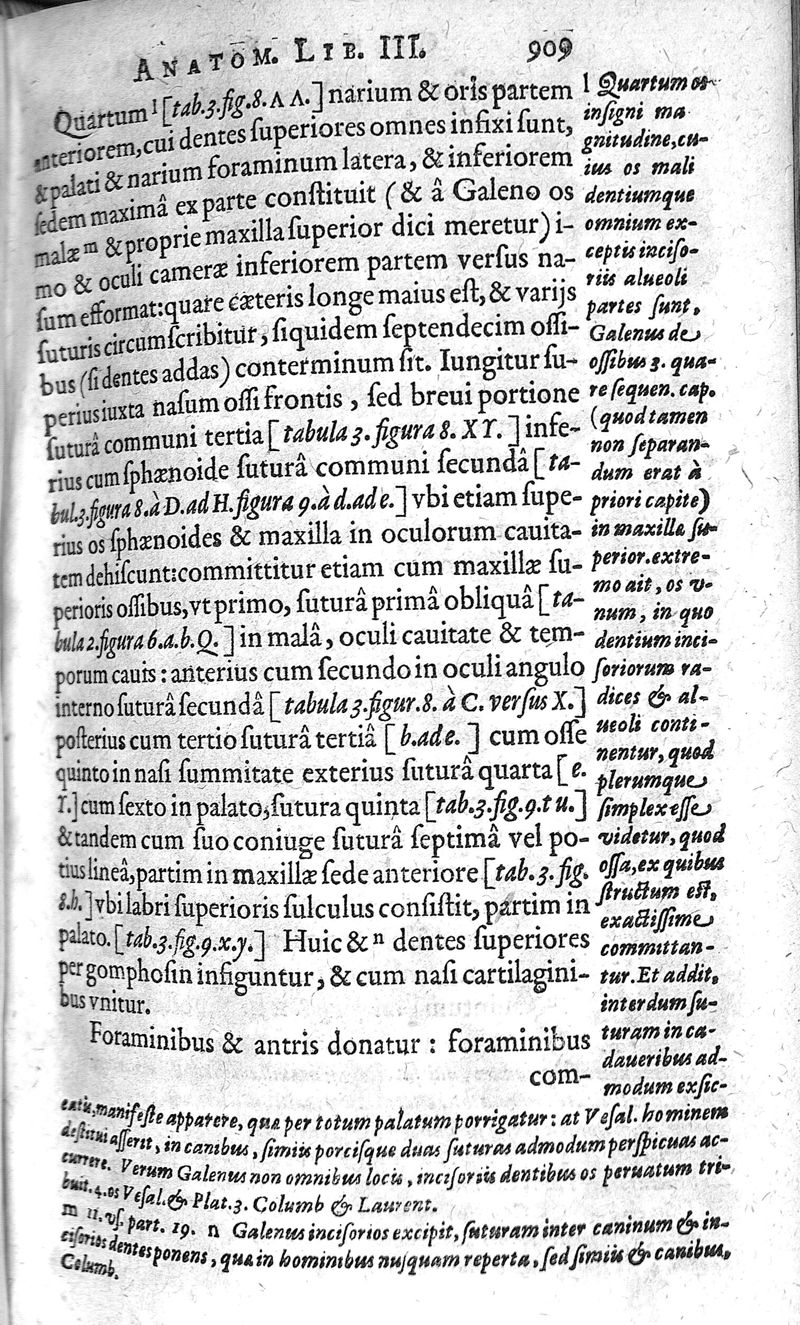 ANATOM. LIB. III. 909
Quartum l [tab.3.fig.8.Λ Λ.] narium & oris partem
anteriorem, cui dentes ſuperiores omnes infixi ſunt,
& palati & narium foraminum latera, & inferiorem
ſedem maximâ ex parte conſtituit (& â Galeno os
malæ m & proprie maxilla ſuperior dici meretur) i-
mo & oculi cameræ inferiorem partem verſus na-
ſum efformat: quare cæteris longe maius eſt, & varijs
ſuturis circumſcribitur, ſiquidem ſeptendecim oſſi-
bus (ſi dentes addas) conterminum ſit. Iungitur ſu-
perius iuxta naſum oſſi frontis, ſed breui portione
ſuturâ communi tertia [tabula 3. figura 8. X Y.] infe-
rius cum ſphænoide ſuturâ communi ſecundâ [ta-
bul.3. figura 8. à D. ad H. figura 9. à d. ad e.] vbi etiam ſupe-
rius os ſphænoides & maxilla in oculorum cauita-
tem dehiſcunt: committitur etiam cum maxillæ ſu-
perioris oſſibus, vt primo, ſuturâ primâ obliquâ [ta-
bula 2. figura 6. a. b. Q.] in malâ, oculi cauitate & tem-
porum cauis: anterius cum ſecundo in oculi angulo
interno ſuturâ ſecundâ [tabula 3. figur. 8. à C. verſus X.]
poſterius cum tertio ſuturâ tertiâ [b. ad e.] cum oſſe
quinto in naſi ſummitate exterius ſuturâ quarta [e.
Y.] cum ſexto in palato, ſutura quinta [tab.3.fig.9.t u.]
& tandem cum ſuo coniuge ſuturâ ſeptimâ vel po-
tius lineâ, partim in maxillæ ſede anteriore [tab. 3. fig.
8.h.] vbi labri ſuperioris ſulculus conſiſtit, partim in
palato. [tab.3.fig.9.x.y.] Huic & n dentes ſuperiores
per gomphoſin infiguntur, & cum naſi cartilagini-
bus vnitur.
Foraminibus & antris donatur: foraminibus
com-
l Quartum os
inſigni ma
gnitudine, cu-
ius os mali
dentiumque
omnium ex-
ceptis inciſo-
riis alueoli
partes ſunt.
Galenus de
oſſibus 3. qua-
re ſequen. cap.
(quod tamen
non ſeparan-
dum erat à
priori capite)
in maxilla ſu-
perior. extre-
mo ait, os v-
num, in quo
dentium inci-
ſoriorum ra-
dices & al-
ueoli conti-
nentur, quod
plerumque
ſimplex eſſe
videtur, quod
oſſa, ex quibus
ſtructum eſt,
exactiſſime
committan-
tur. Et addit,
interdum ſu-
turam in ca-
daueribus ad-
modum exſic-
catis, manifeſte apparere, quæ per totum palatum porrigatur: at Veſal. hominem
deſtitui aſſerit, in canibus, ſimiis porciſque duas ſuturas admodum perſpicuas ac-
currere. Verum Galenus non omnibus locis, inciſoriis dentibus os peruatum tri-
buit. 4. os Veſal. & Plat. 3. Columb & Laurent.
m 11. vſ. part. 19. n Galenus inciſorios excipit, ſuturam inter caninum & in-
ciſorios dentes ponens, quæ in hominibus nuſquam reperta, ſed ſimiis & canibus.
Columb.